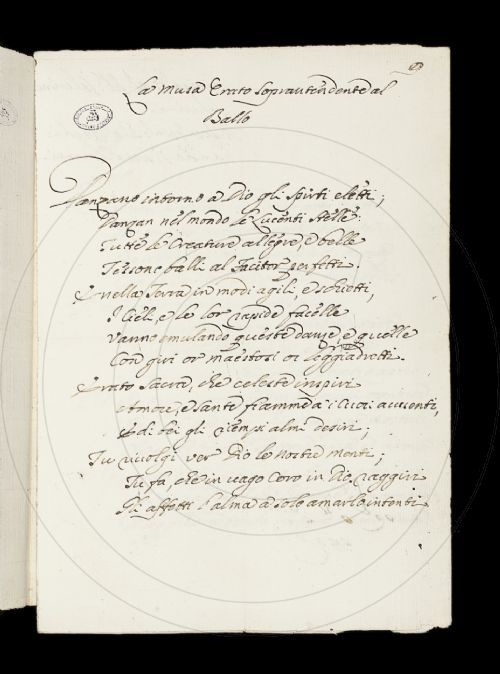 La Musa Erato soprantendente al
Ballo
Danzano intorno a Dio gli spirti eletti;
Danzan nel mondo le lucenti stelle:
Tutte le Creature allegre, e belle
Tessono balli al Facitor perfetti.
E nella Terra in modi agili, e schietti,
I Cieli, e le lor rapide facelle
Vanno emulando queste danze, e quelle
Con giri or maestosi or leggiadretti.
Erato sacra, che celeste inspiri
Amore, e sante fiamme a i Cuori
E di bei gli riempi almi desiri;
Tu rivolgi ver Dio le nostre menti;
Tu fa, che in vago Coro in Dio raggiri
Gli affetti l'alma a solo amarlo intenti